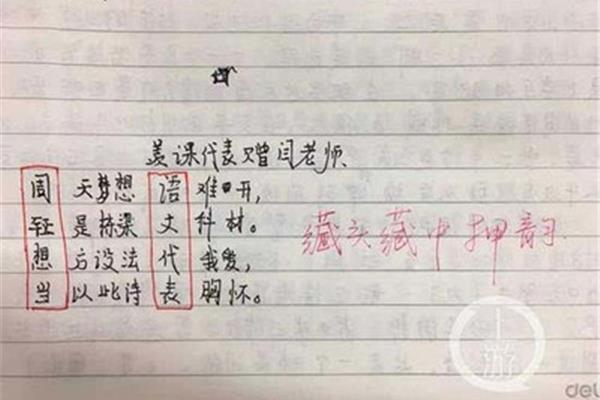 美课代表赠闫老师.
周天梦想语难开,
轻是栋梁文科材。
想方设法代我爱,
当以此诗表胸怀。
藏头藏中押韵
上游
del